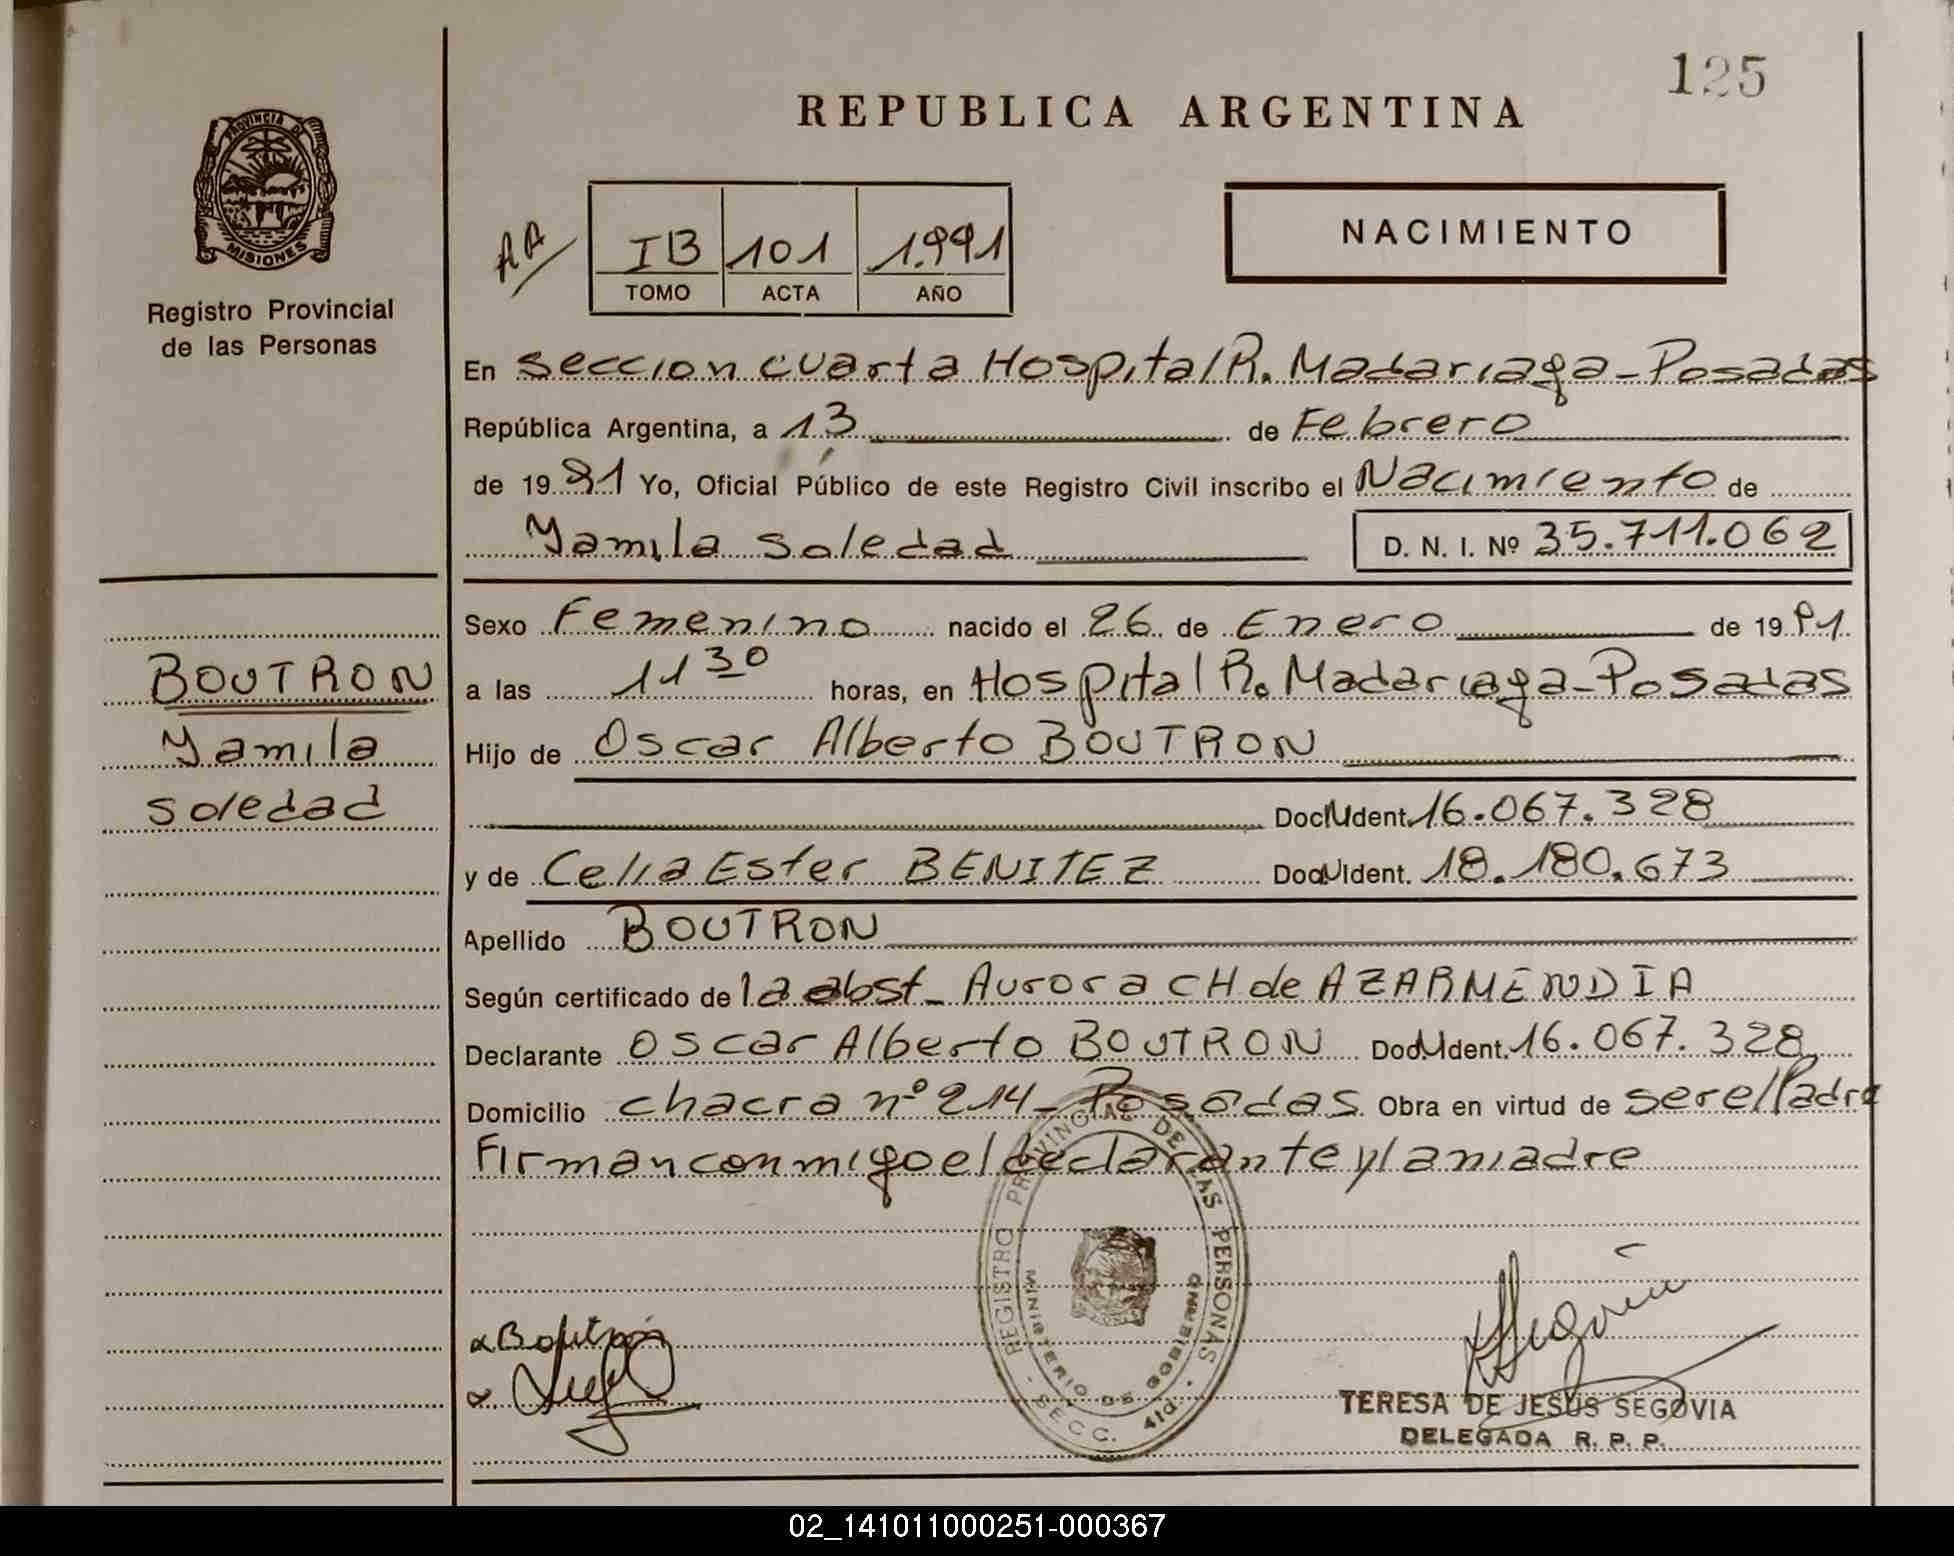 125
REPUBLICA ARGENTINA
PROVINCIA DE
MISIONES
Registro Provincial
de las Personas
AA
IB 101 1.991
TOMO ACTA AÑO
NACIMIENTO
En seccion cuarta Hospital R. Madariaga - Posadas
República Argentina, a 13 de Febrero
de 1991 Yo, Oficial Público de este Registro Civil inscribo el Nacimiento de
Yamila Soledad D. N. I. Nº 35.711.062
BOUTRON
Yamila
Soledad
Sexo Femenino nacido el 26 de Enero de 1991
a las 11 30 horas, en Hospital R. Madariaga - Posadas
Hijo de Oscar Alberto BOUTRON
Doc Ident. 16.067.328
y de Celia Ester BENITEZ Doc Ident. 18.180.673
Apellido BOUTRON
Según certificado de la obst - Aurora CH de AZARMENDIA
Declarante Oscar Alberto BOUTRON Doc Ident. 16.067.328
Domicilio chacra nº 214 - Posadas Obra en virtud de ser el Padre
Firman conmigo el declarante y la madre
REGISTRO PROVINCIAL DE LAS PERSONAS
MINISTERIO DE GOBIERNO
SECC. 4ta.
TERESA DE JESÚS SEGOVIA
DELEGADA R. P. P.
02_141011000251-000367